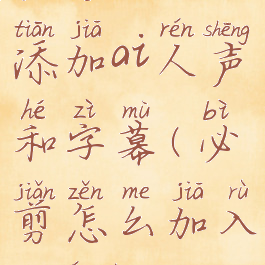 tiān jiā rén shēng
添加ai人声
hé zì mù bì
和字幕(必
jiǎn zěn me jiā rù
剪怎么加入